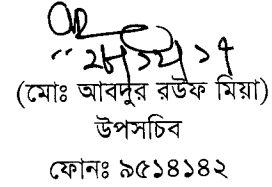 ২৮/১২/১৭
(মোঃ আবদুর রউফ মিয়া)
উপসচিব
ফোনঃ ৯৫১৪১৪২